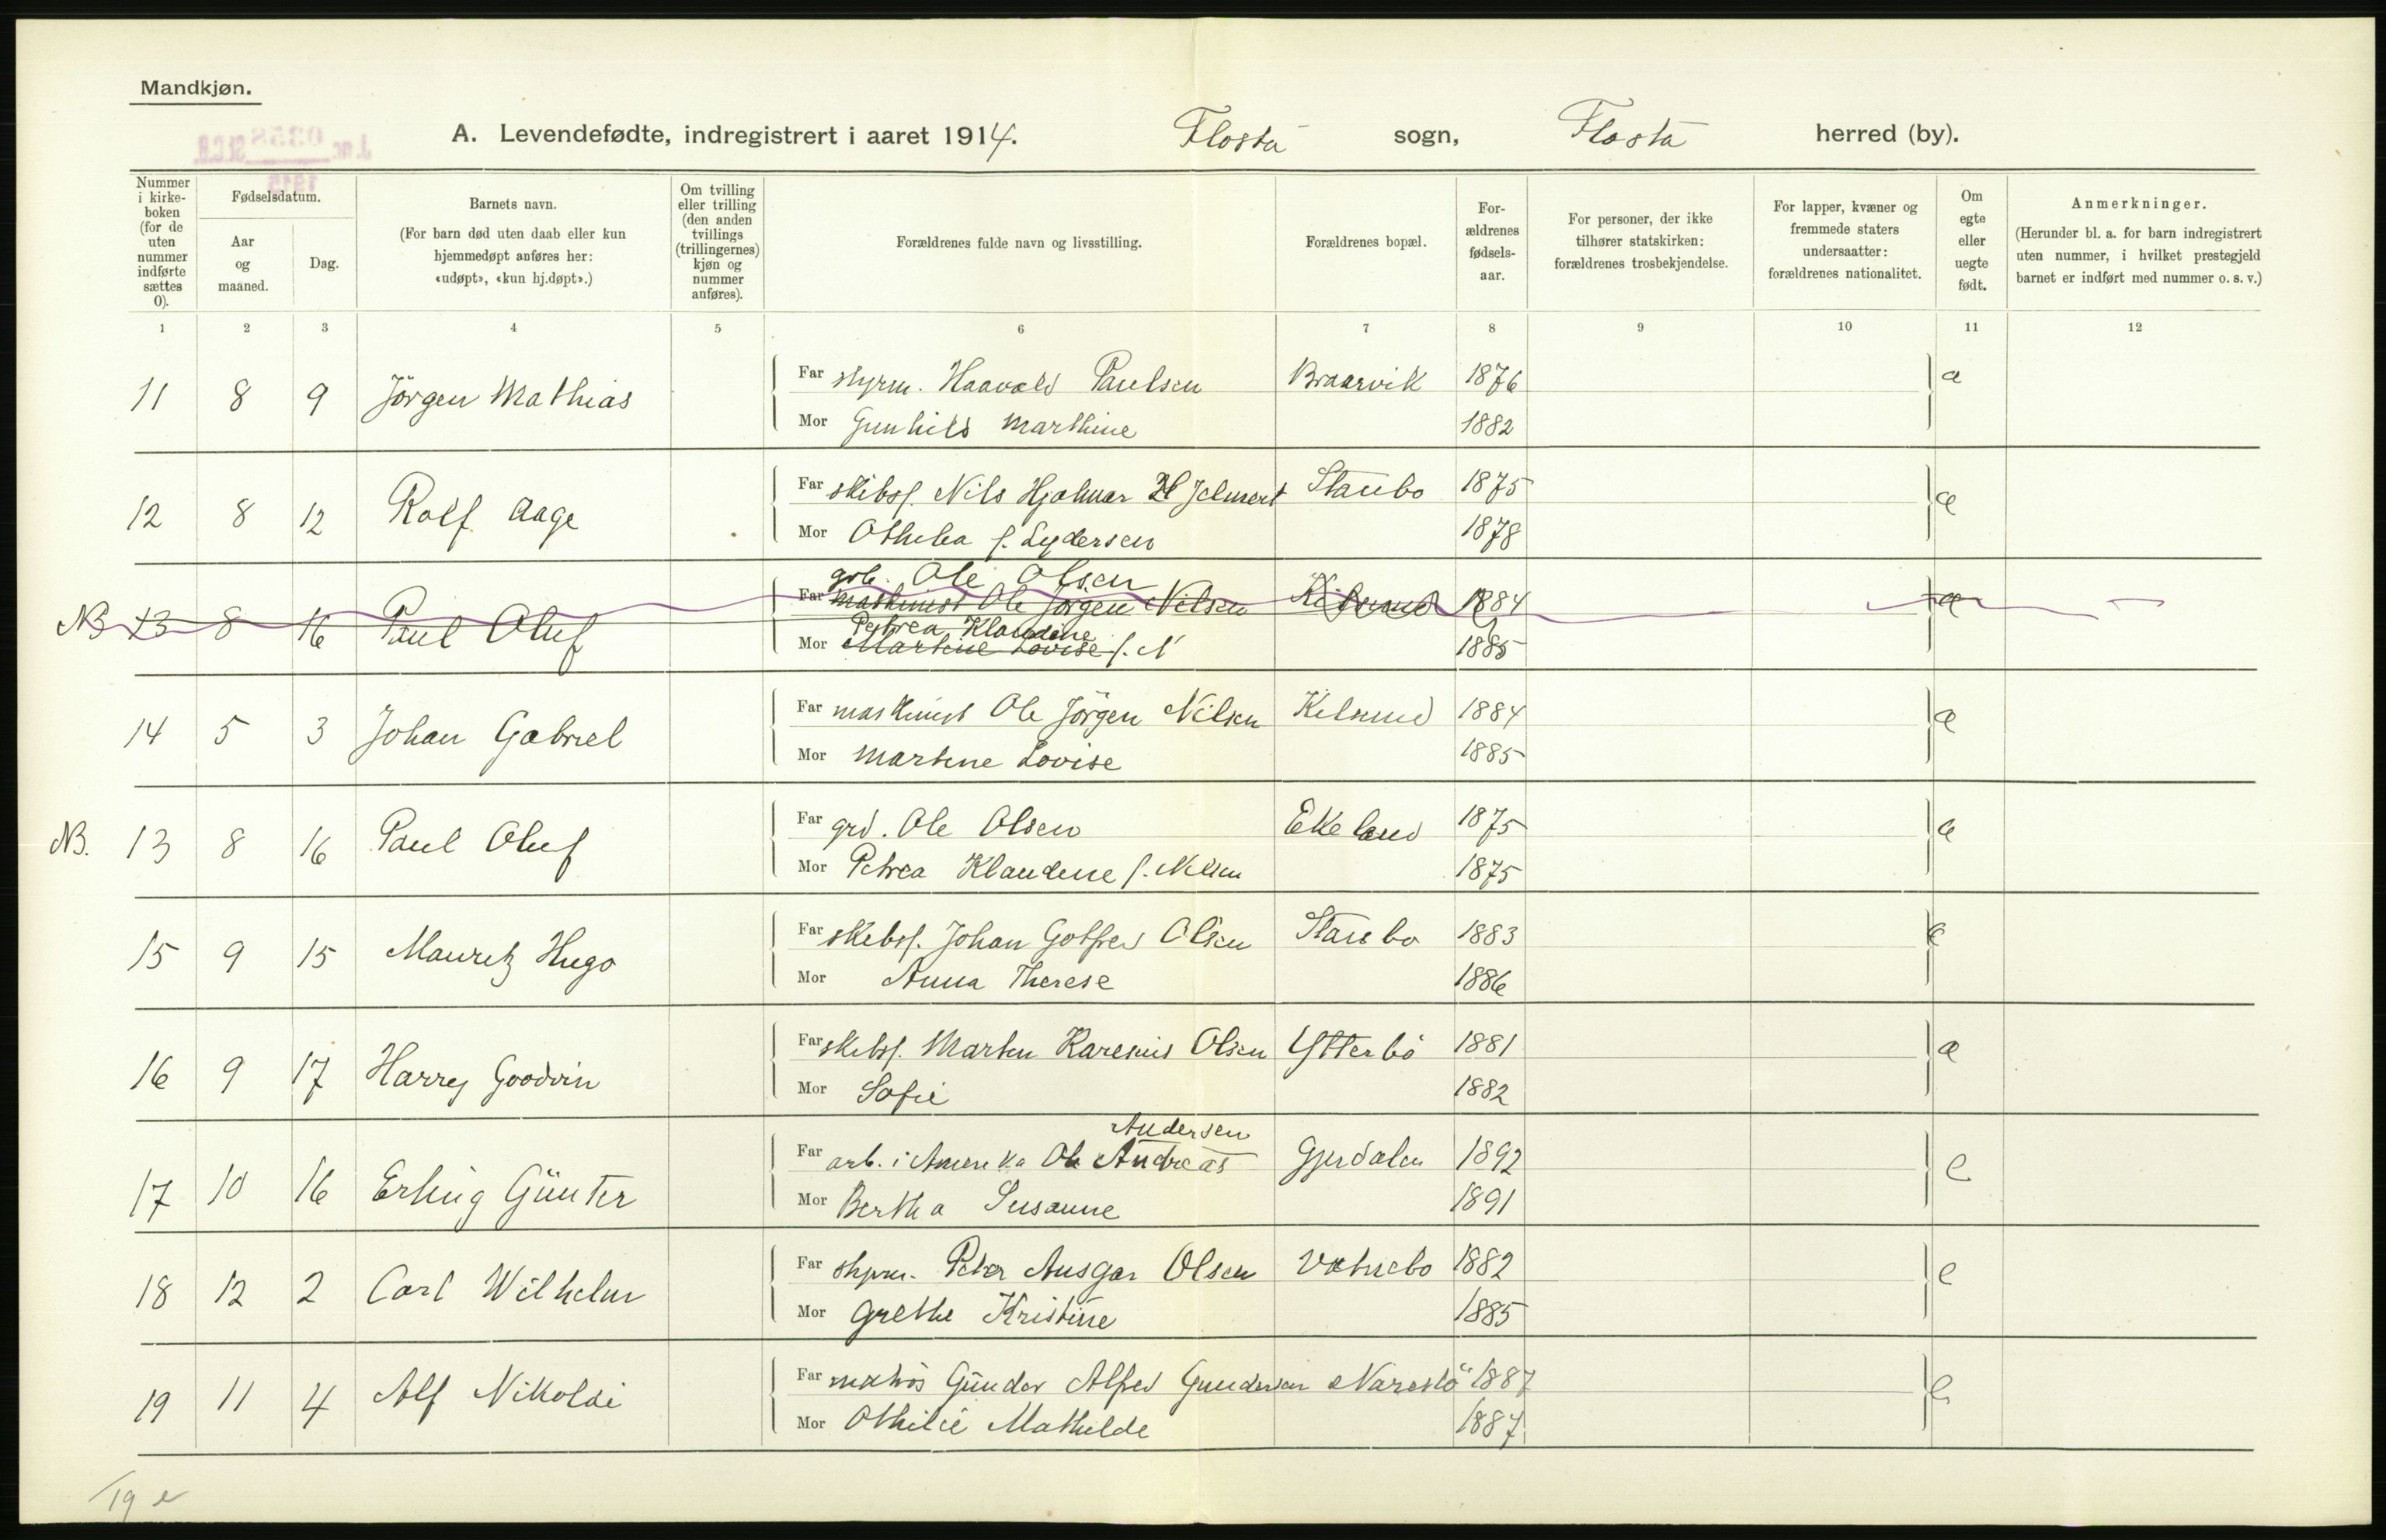 Mandkjøn.
A. Levendefødte, indregistrert i aaret 1914. Flosta sogn, Flosta herred (by).
Nummer i kirke-boken (for de uten nummer indførte sættes 0).
Fødselsdatum.
Aar og maaned.
Dag.
Barnets navn.
(For barn død uten daab eller kun hjemmedøpt anføres her: «udøpt», «kun hj.døpt».)
Om tvilling eller trilling (den anden tvillings (trillingernes) kjøn og nummer anføres).
Forældrenes fulde navn og livsstilling.
Forældrenes bopæl.
For-ældrenes fødsels-aar.
For personer, der ikke tilhører statskirken: forældrenes trosbekjendelse.
For lapper, kvæner og fremmede staters undersaatter: forældrenes nationalitet.
Om egte eller uegte født.
Anmerkninger.
(Herunder bl. a. for barn indregistrert uten nummer, i hvilket prestegjeld barnet er indført med nummer o. s. v.)
1 2 3 4 5 6 7 8 9 10 11 12
11 8 9 Jörgen Mathias Far styrm. Haavald Paulsen Braarvik 1876 æ
Mor Gunhild Marthine 1882
12 8 12 Rolf Aage Far skibsf. Nils Hjalmar Staubo 1875 æ
Mor Othilia f. Lydersen 1878
grb. Ole Olsen
NB 13 8 16 Paul Oluf Far maskinist Ole Jörgen Nilsen Kilsund 1884 æ
Petrea Klaudine
Mor Martine Lovise f. N 1885
14 5 3 Johan Gabriel Far maskinist Ole Jörgen Nilsen Kilsund 1884 æ
Mor Martine Lovise 1885
NB. 13 8 16 Paul Oluf Far grd. Ole Olsen Ekeland 1875 æ
Mor Petrea Klaudine f. Nilsen 1875
15 9 15 Mauritz Hugo Far skibsf. Johan Gotfred Olsen Staubo 1883 e
Mor Anna Therese 1886
16 9 17 Harry Goodvin Far skibsf. Martin Karenius Olsen Ytterbö 1881 æ
Mor Sofie 1882
Andersen
17 10 16 Erling Günter Far arb. i Amerika Ole Andreas Gjerdalen 1892 e
Mor Bertha Susanne 1891
18 12 2 Carl Wilhelm Far styrm. Peter Ansgar Olsen Vatnebo 1882 e
Mor Grethe Kristine 1885
19 11 4 Alf Nikolai Far matros Gunder Alfred Gundersen Narestö 1887 e
Mor Othilie Mathilde 1887
19 e